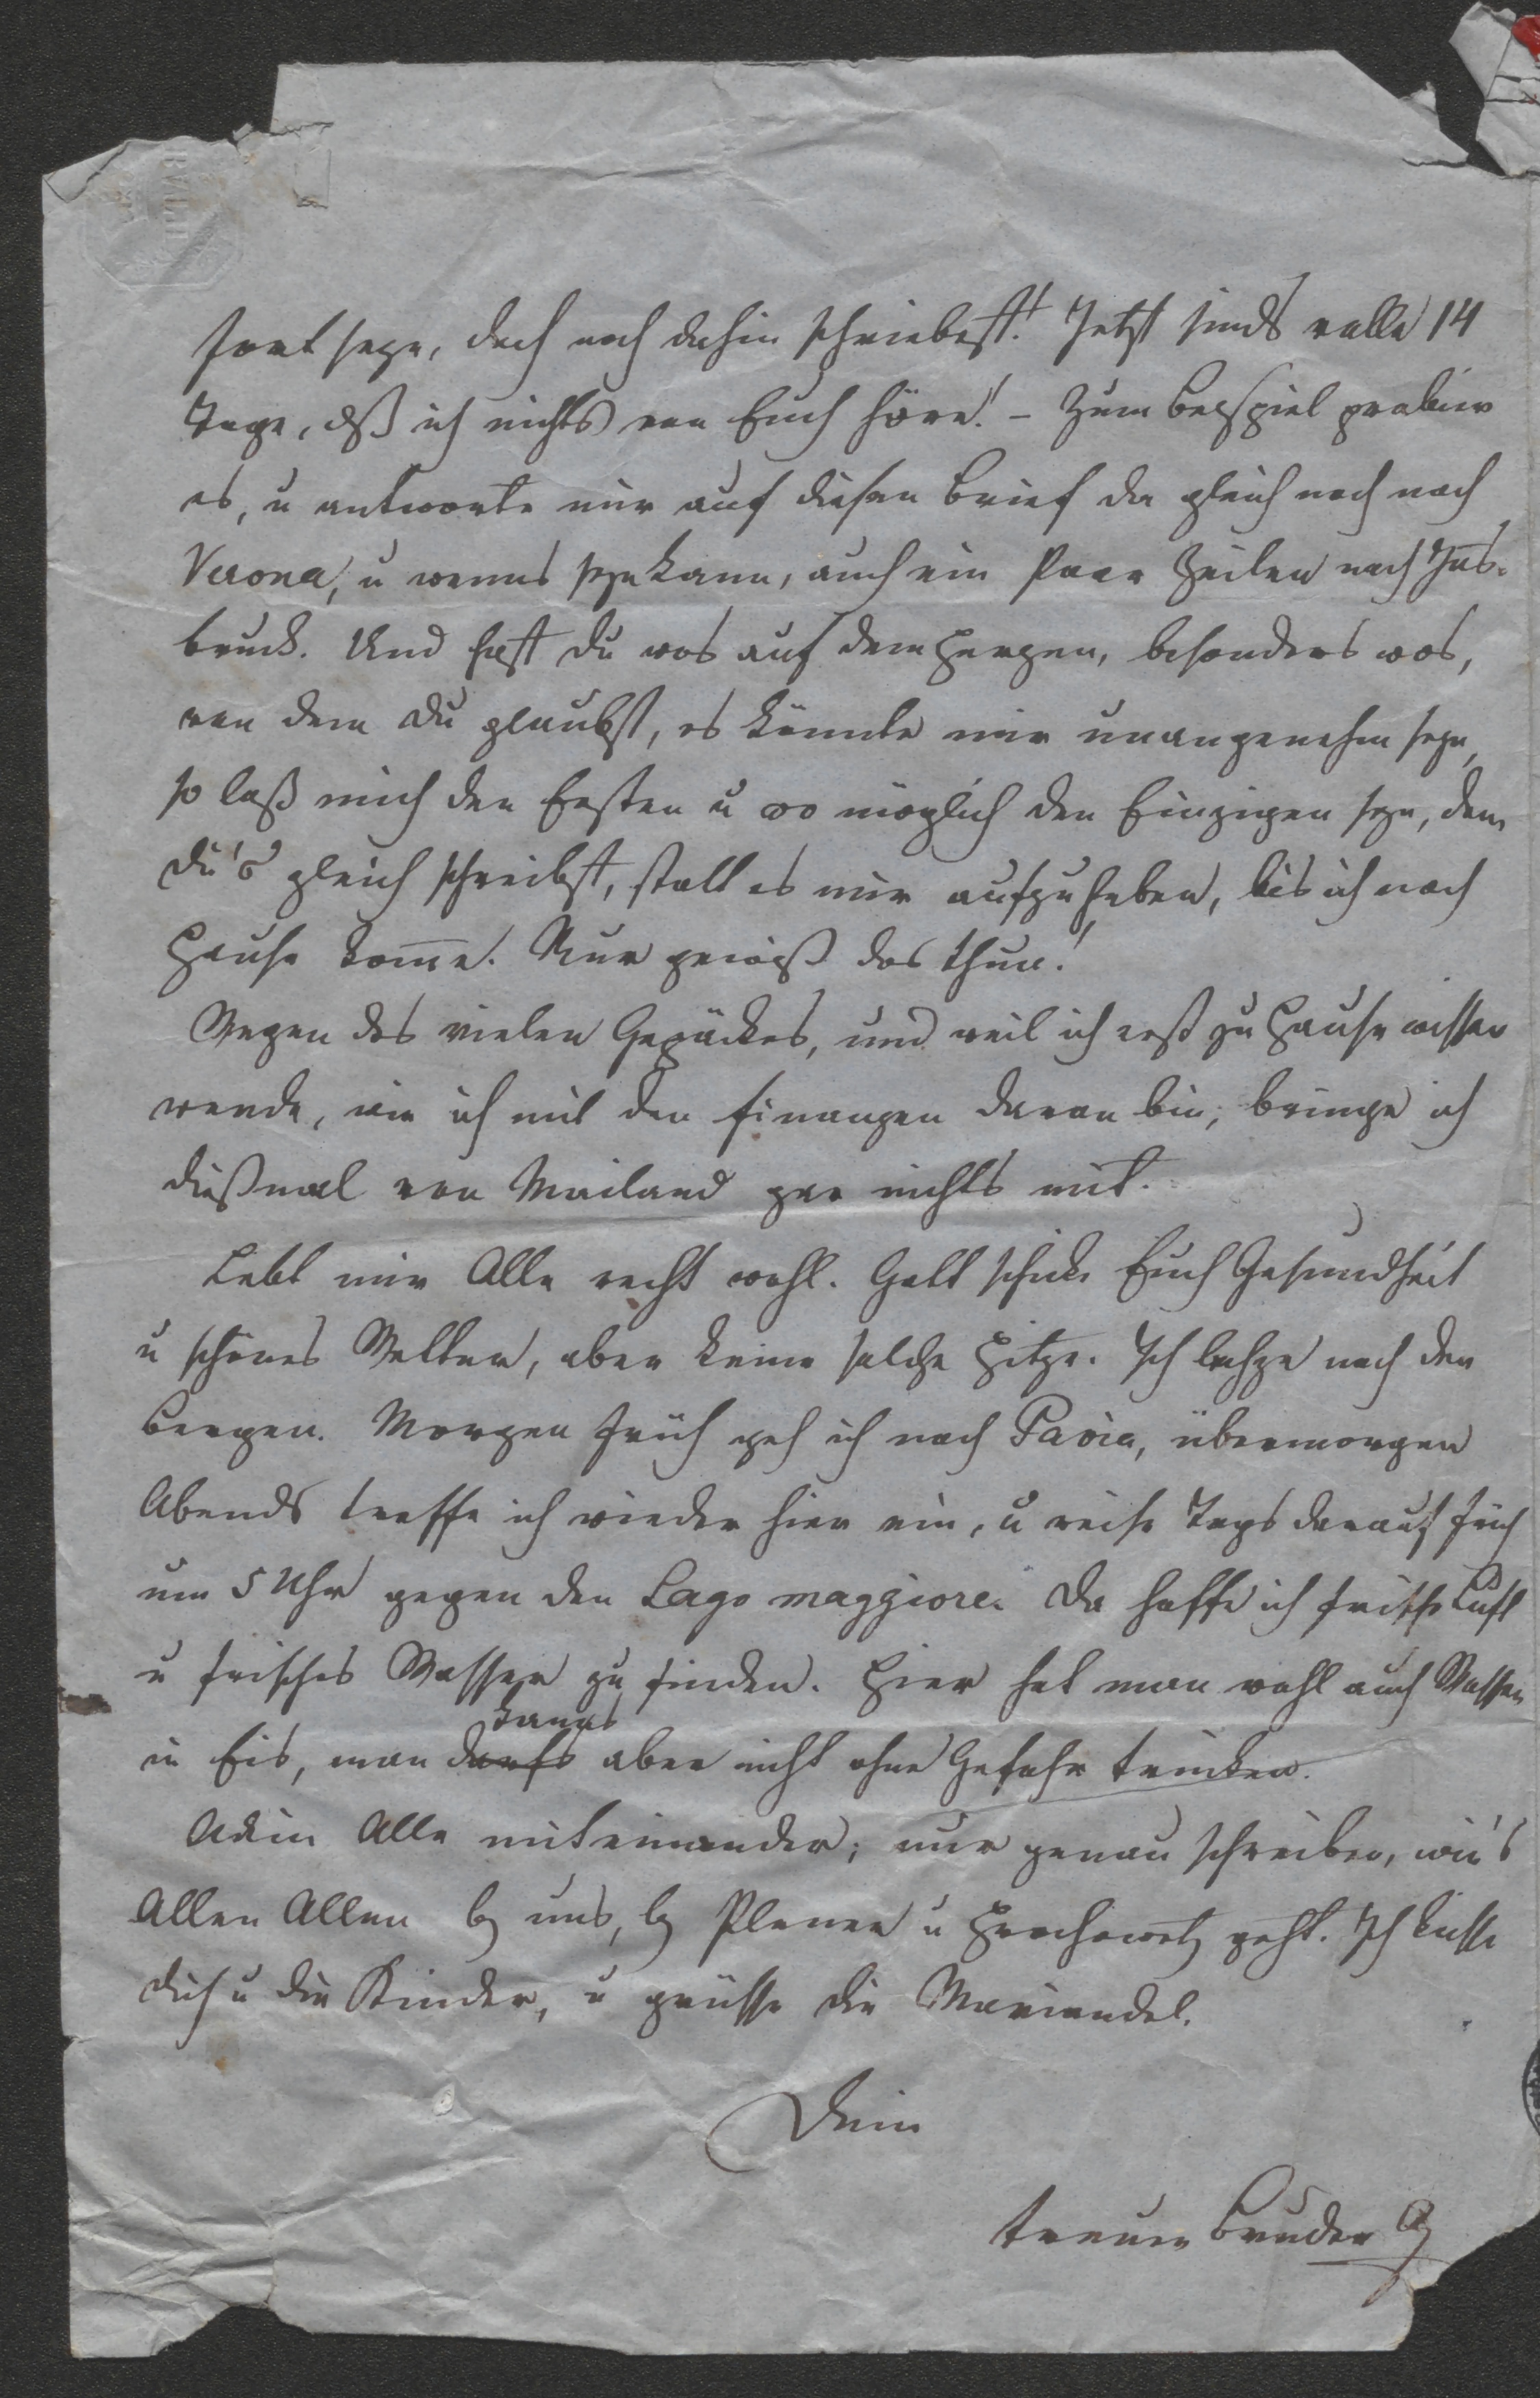 fort seyn, doch noch dahin schriebest! Jetzt sinds volle 14
Tage, dß ich nichts von Euch höre! – Zum Beyspiel probier
es, u antworte mir auf diesen Brief da gleich noch nach
Verona, u wenns seyn kann, auch ein Paar Zeilen nach Ins-
bruck. Und hast du was auf dem Herzen, besonders was,
von dem du glaubst, es könnte mir unangenehm seyn,
so laß mich den Ersten u wo möglich den Einzigen seyn, dem
du's gleich schreibst, statt es mir aufzuheben, bis ich nach
Hause kom̅e. Nur gewiß das thun!
Wegen des vielen Gepäckes, und weil ich erst zu Hause wissen
werde, wie ich mit den Finanzen daran bin, bringe ich
dießmal von Mailand gar nichts mit.
Lebt mir Alle recht wohl. Gott schicke Euch Gesundheit
u schönes Wetter, aber keine solche Hitze. Ich lechze nach den
Bergen. Morgen früh geh ich nach Pavia, übermorgen
Abends treffe ich wieder hier ein, u reise Tags darauf früh
um 5 Uhr gegen den Lago maggiore. Da hoffe ich frische Luft
u frisches Wasser zu finden. Hier hat man wohl auch Wasser
in Eis, man darfs kanns aber nicht ohne Gefahr trinken.
Adieu Alle miteinander; nur genau schreiben, wie's
Allen Allen bey uns, bey Plener u geht. Ich küsse
dich u die Kinder, u grüsse die Mariandel.
Dein
treuer Bruder